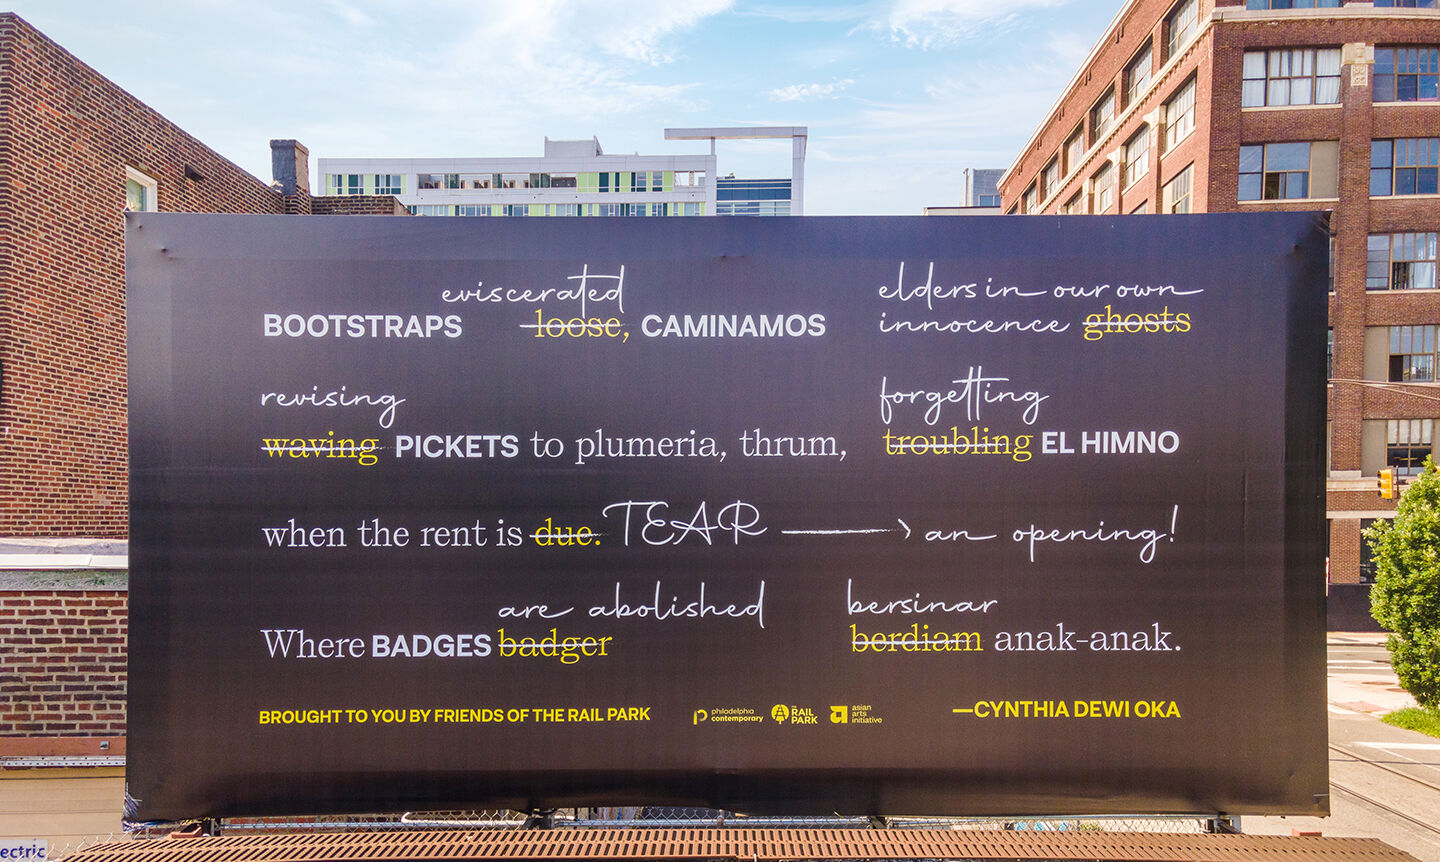 eviscerated elders in our own
BOOTSTRAPS loose, CAMINAMOS innocence ghosts
revising forgetting
waving PICKETS to plumeria, thrum, troubling EL HIMNO
when the rent is due. TEAR → an opening!
are abolished bersinar
Where BADGES badger berdiam anak-anak.
BROUGHT TO YOU BY FRIENDS OF THE RAIL PARK philadelphia contemporary THE RAIL PARK asian arts initiative —CYNTHIA DEWI OKA
ectric